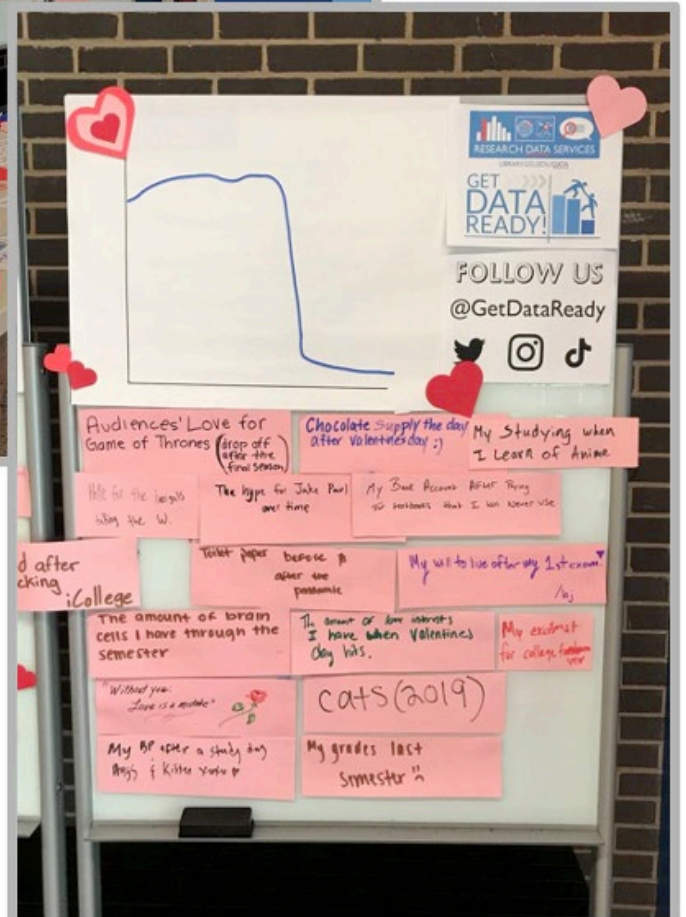 RESEARCH DATA SERVICES
LIBRARY.GSU.EDU/DATA
GET
DATA
READY!
FOLLOW US
@GetDataReady
Audiences' Love for
Game of Thrones (drop off
after the
final season)
Chocolate supply the day
after Valentinesday :)
My Studying when
I Learn of Anime
for the
the W.
The hype for Jake Paul
over time
My Bank Account After Paying
For textbooks that I can Never Use
d after
cking
iCollege
Toilet paper before &
after the
pandemic
My will to live after my 1st exam
The amount of brain
cells I have through the
semester
The amount of love interests
I have when Valentines
day hits.
My
for college
"Without you:
Love is a mistake"
cats (2019)
My BP after a study day
My grades last
semester